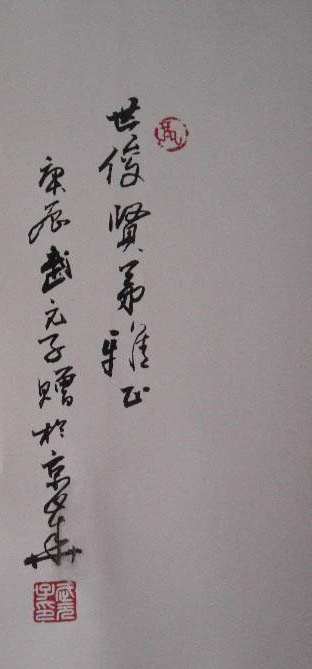 世俊賢弟雅正
庚辰武元子贈於京華
武元子印